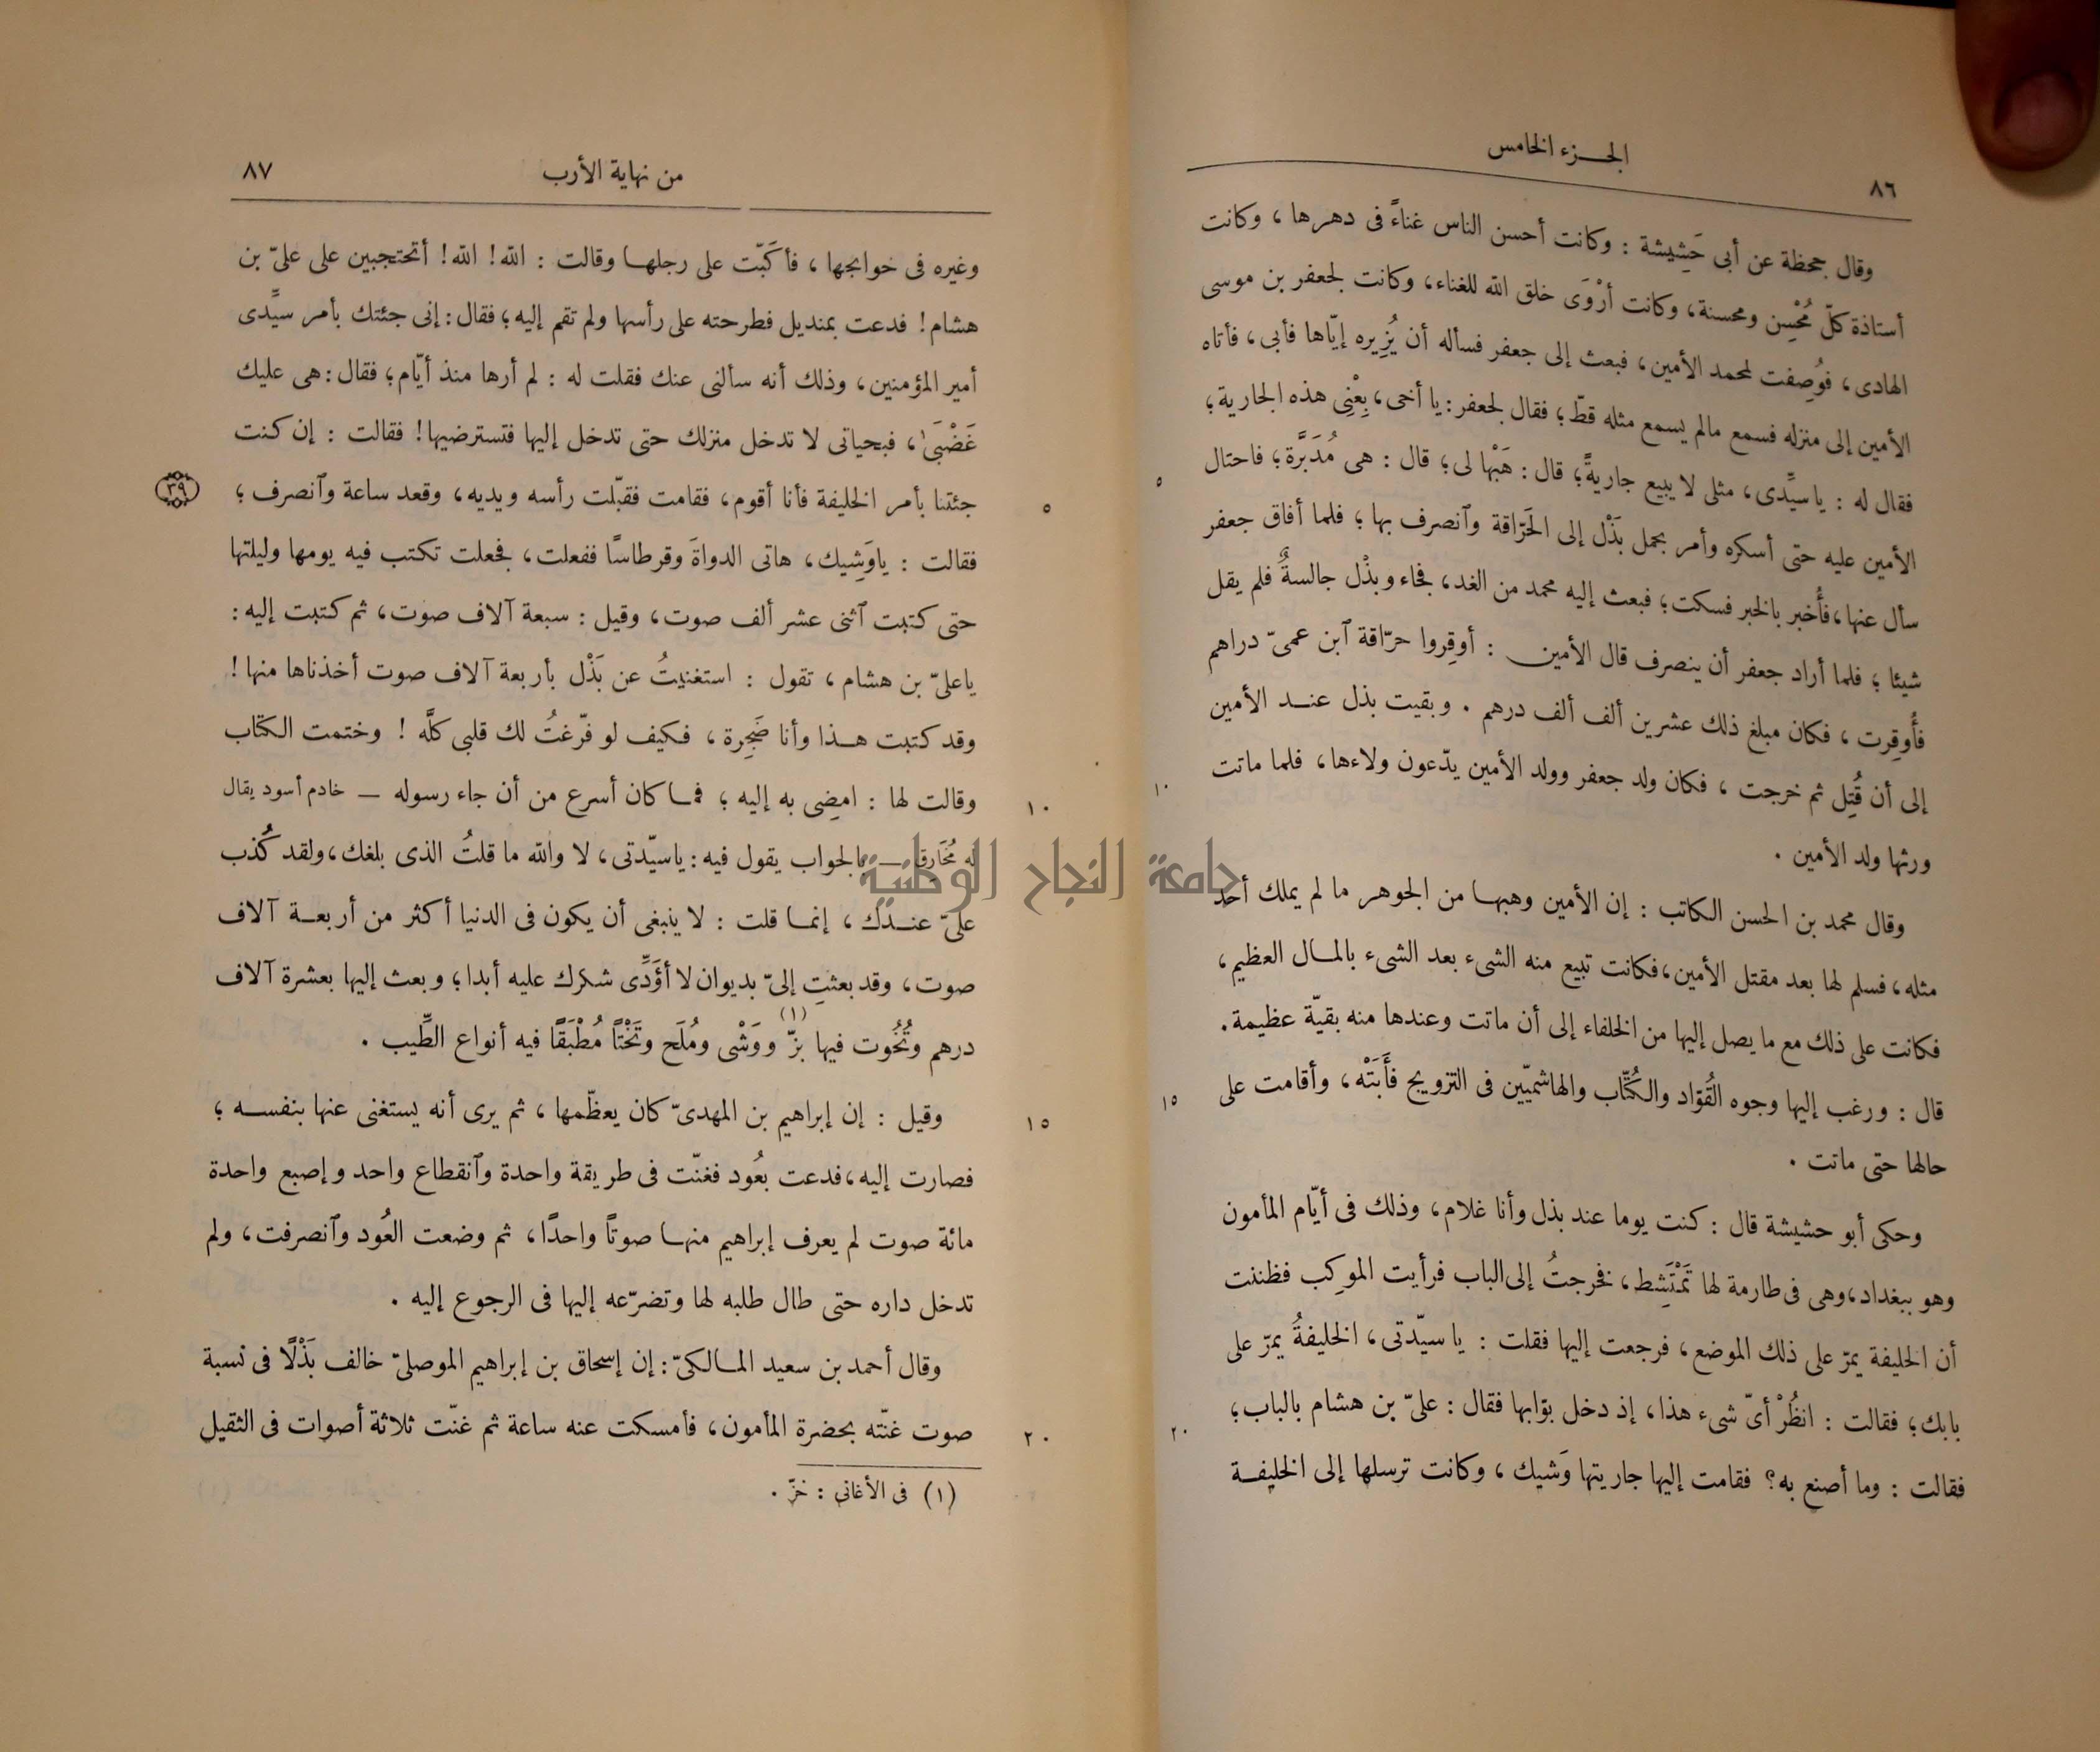 الجزء الخامس
٨٦
وقال جحظة عن أبى حَشِيشة : وكانت أحسن الناس غناءً فى دهرها ، وكانت
أستاذة كلّ مُحْسِن ومحسنة، وكانت أرْوَى خلق الله للغناء، وكانت لجعفر بن موسى
الهادى ، فوُصِفت لمحمد الأمين، فبعث إلى جعفر فسأله أن يُزِيره إيّاها فأبى، فأتاه
الأمين إلى منزله فسمع مالم يسمع مثله قطّ؛ فقال لجعفر: يا أخى، بِعْنِى هذه الجارية؛
فقال له : ياسيِّدى، مثلى لا يبيع جاريةً؛ قال : هَبْها لى؛ قال : هى مُدَبَّرة؛ فاحتال
٥
الأمين عليه حتى أسكره وأمر بحمل بَذْل إلى الحَرّاقة وٱنصرف بها ؛ فلما أفاق جعفر
سأل عنها، فأُخبر بالخبر فسكت؛ فبعث إليه محمد من الغد، فجاء وبذْل جالسةٌ فلم يقل
شيئا ؛ فلما أراد جعفر أن ينصرف قال الأمين : أوقِروا حرّاقة ٱبن عمىّ دراهم
فأُوقِرت ، فكان مبلغ ذلك عشرين ألف ألف درهم . وبقيت بذل عند الأمين
إلى أن قُتِل ثم خرجت ، فكان ولد جعفر وولد الأمين يدّعون ولاءها، فلما ماتت
١٠
ورثها ولد الأمين .
وقال محمد بن الحسن الكاتب : إن الأمين وهبها من الجوهر ما لم يملك أحد
مثله، فسلم لها بعد مقتل الأمين، فكانت تبيع منه الشىء بعد الشىء بالمال العظيم،
فكانت على ذلك مع ما يصل إليها من الخلفاء إلى أن ماتت وعندها منه بقيّة عظيمة.
قال : ورغب إليها وجوه القُوّاد والكُتّاب والهاشميّين فى التزويج فأَبَتْه، وأقامت على
١٥
حالها حتى ماتت .
وحكى أبو حشيشة قال : كنت يوما عند بذل وأنا غلام، وذلك فى أيّام المأمون
وهو ببغداد، وهى فى طارمة لها تَمْتَشِط، فخرجتُ إلى الباب فرأيت الموكِب فظننت
أن الخليفة يمرّ على ذلك الموضع، فرجعت إليها فقلت : يا سيّدتى، الخليفةُ يمرّ على
بابك؛ فقالت : انظُرْ أىّ شىء هذا، إذ دخل بوّابها فقال : علىّ بن هشام بالباب؛
٢٠
فقالت : وما أصنع به؟ فقامت إليها جاريتها وَشيك ، وكانت ترسلها إلى الخليفة
من نهاية الأرب
٨٧
وغيره فى حوائجها ، فأكبّت على رجلها وقالت : الله! الله! أتحتجبين على علىّ بن
هشام! فدعت بمنديل فطرحته على رأسها ولم تقم إليه؛ فقال: إنى جئتك بأمر سيِّدى
أمير المؤمنين، وذلك أنه سألنى عنك فقلت له : لم أرها منذ أيّام؛ فقال: هى عليك
غَضْبَى، فبحياتى لا تدخل منزلك حتى تدخل إليها فتسترضيها! فقالت : إن كنت
جئتنا بأمر الخليفة فأنا أقوم، فقامت فقبّلت رأسه ويديه، وقعد ساعة وٱنصرف ؛
٥
٣٩
فقالت : ياوَشِيك، هاتى الدواةَ وقرطاسًا ففعلت، فجعلت تكتب فيه يومها وليلتها
حتى كتبت ٱثنى عشر ألف صوت، وقيل : سبعة آلاف صوت، ثم كتبت إليه :
ياعلىّ بن هشام ، تقول : استغنيتُ عن بَذْل بأربعة آلاف صوت أخذناها منها !
وقد كتبت هذا وأنا ضَجِرة ، فكيف لو فرّغتُ لك قلبى كلَّه ! وختمت الكتاب
وقالت لها : امضِى به إليه ؛ فما كان أسرع من أن جاء رسوله — خادم أسود يقال
١٠
له مُخَارِق — بالجواب يقول فيه : ياسيّدتى، لا والله ما قلتُ الذى بلغك، ولقد كُذب
علىّ عندك ، إنما قلت : لا ينبغى أن يكون فى الدنيا أكثر من أربعة آلاف
صوت، وقد بعثتِ إلىّ بديوان لا أؤَدِّى شكرك عليه أبدا؛ وبعث إليها بعشرة آلاف
درهم وتُخُوت فيها بزّ (١) ووَشْى ومُلَح وتَخْتًا مُطْبَقًا فيه أنواع الطِّيب .
وقيل : إن إبراهيم بن المهدىّ كان يعظّمها ، ثم يرى أنه يستغنى عنها بنفسه ؛
١٥
فصارت إليه، فدعت بعُود فغنّت فى طريقة واحدة وٱنقطاع واحد وإصبع واحدة
مائة صوت لم يعرف إبراهيم منها صوتًا واحدًا، ثم وضعت العُود وٱنصرفت، ولم
تدخل داره حتى طال طلبه لها وتضرّعه إليها فى الرجوع إليه .
وقال أحمد بن سعيد المالكىّ : إن إسحاق بن إبراهيم الموصلىّ خالف بَذْلًا فى نسبة
صوت غنّته بحضرة المأمون، فأمسكت عنه ساعة ثم غنّت ثلاثة أصوات فى الثقيل
٢٠
(١) فى الأغانى : خزّ .
جامعة النجاح الوطنية